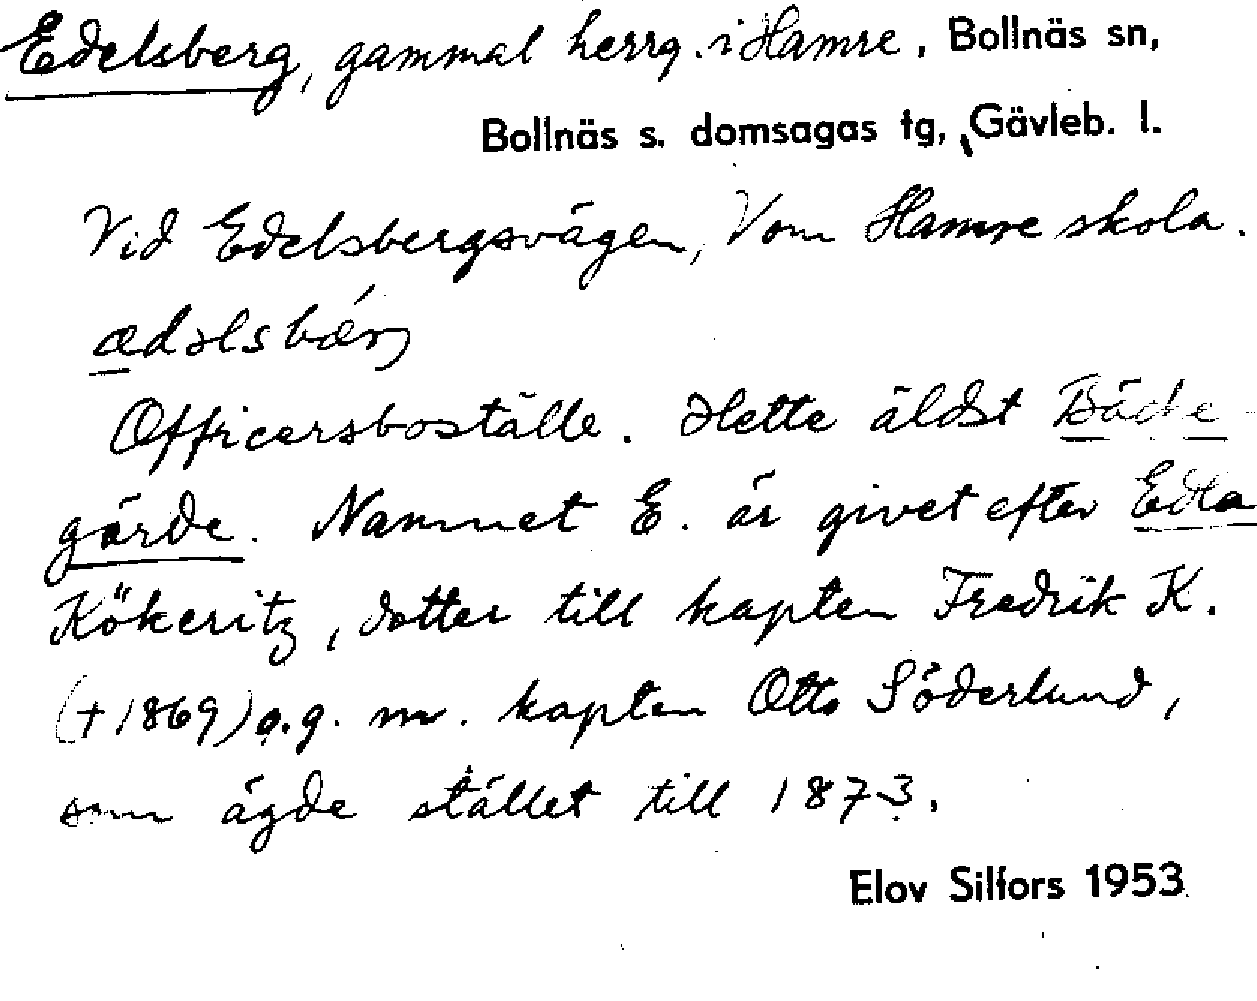 Edelsberg, gammal herrg. i Hamre, Bollnäs sn,
Bollnäs s. domsagas tg, Gävleb. l.
Vid Edelsbergsvägen, V om Hamre skola.
ædəlsbærj
Officersboställe. Hette äldst
gärde. Namnet E. är givet efter Edla
Kökeritz, dotter till kapten Fredrik K.
(† 1869) o.g. m. kapten Otto Söderlund,
som ägde stället till 1873.
Elov Silfors 1953